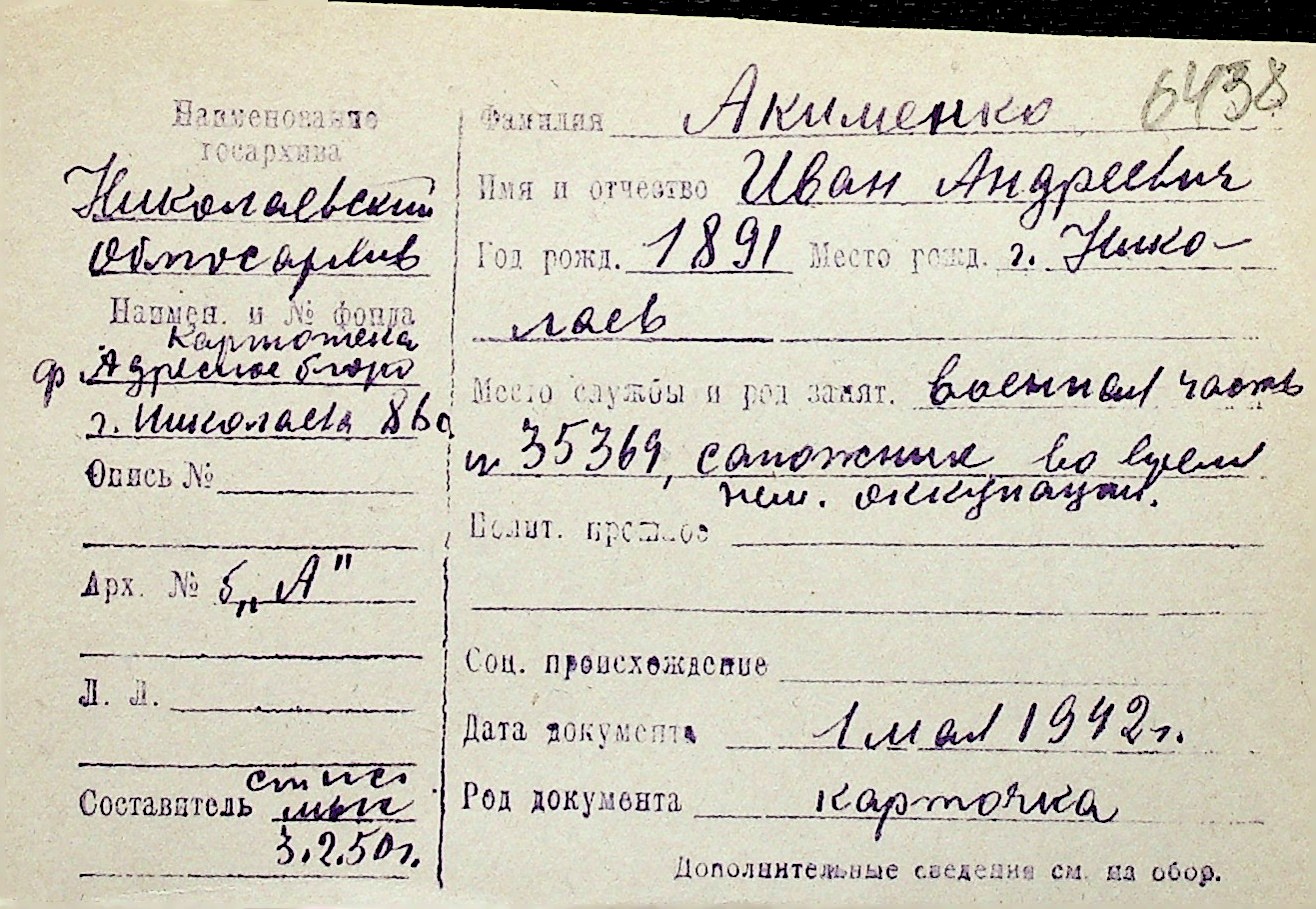 6438
Наименование
госархива
Николаевский
Облгосархив
Наимен. и № фонда
Картотека
ф. Адресное бюро
г. Николаева
Опись №
Арх. № б„А"
Л. Л.
Составитель
3.2.50г.
Фамилия Акименко
Имя и отчество Иван Андреевич
Год рожд. 1891 Место рожд. г. Нико-
лаев
Место службы и род занят. военная часть
н 35369, сапожник во время
нем. оккупации.
Полит. прошлое
Соц. происхождение
Дата документа 1 мая 1942г.
Род документа карточка
Дополнительные сведения см. на обор.